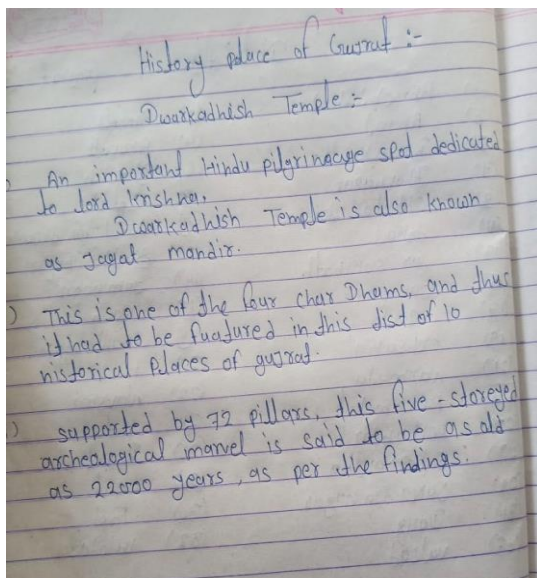 History place of Gujrat :-
Dwarkadhish Temple :-
) An important Hindu pilgrinacage spot dedicated
to lord krishna.
Dwarkadhish Temple is also known
as Jagat mandir.
) This is one of the four char Dhams, and thus
it had to be fuatured in this list of 10
historical places of gujrat.
) supported by 72 pillars, this five-storeyed
archealogical marvel is said to be as old
as 22000 years, as per the findings.